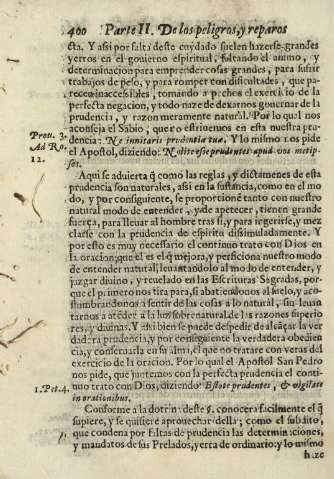 400 Parte II. De los peligros, y reparos
cta. Y assi por falta deste cuydado suelen hazerse grandes
yerros en el gouierno espiritual, faltando el animo, y
determinacion para emprender cosas grandes, para sufrir
trabajos de peso, y para romper con dificultades, que pa-
recen inaccessibles, tomando a pechos el exercicio de la
perfecta negacion, y todo naze de dexarnos gouernar de la
prudencia, y razon meramente natural. Por lo qual nos
aconseja el Sabio, que no estriuemos en esta nuestra pru-
Prou. 3.
dencia: Ne innitaris prudentiæ tuæ. Y lo mismo nos pide
Ad Ro.
el Apostol, diziendo: Nolite esse prudentes apud vos metip-
12.
sos.
Aqui se aduierta q̃ como las reglas, y dictamenes de esta
prudencia son naturales, assi en la sustancia, como en el mo
do, y por consiguiente, se proporcionẽ tanto con nuestro
natural modo de entender, y de apetecer, tienen grande
fuerça, para lleuar al hombre tras si, y para ingerirse, y mez
clarse con la prudencia de espiritu dissimuladamente. Y
por esto es muy necessario el continuo trato con Dios en
la oracion; que el es el q̃ mejora, y perficiona nuestro modo
de entender natural, leuantandolo al modo de entender, y
juzgar diuino, y reuelado en las Escrituras Sagradas, por-
que el primero nos tira para, si abatiendonos al suelo, y aco
stumbrandonos a sentir de las cosas a lo natural, sin leuan
tarnos a atẽder a la luz sobrenatural de las razones superio
res, y diuinas. Y assi bien se puede despedir de alcãçar la ver
dadera prudencia, y por consiguiente la verdadera obedien
cia, y conseruarla en su alma, el que no tratare con veras del
exercicio de la oracion. Por lo qual el Apostol San Pedro
nos pide, que juntemos con la perfecta prudencia el conti-
1. Pet. 4.
nuo trato con Dios, diziendo: Estote prudentes, & vigilate
in orationibus.
Conforme a la dotrina deste §. conocera facilmente el q̃
supiere, y se quisiere aprouechar della; como el subdito,
que condena por faltas de prudencia las determinaciones,
y mandatos de sus Prelados, yerra de ordinario: y lo mismo
haze